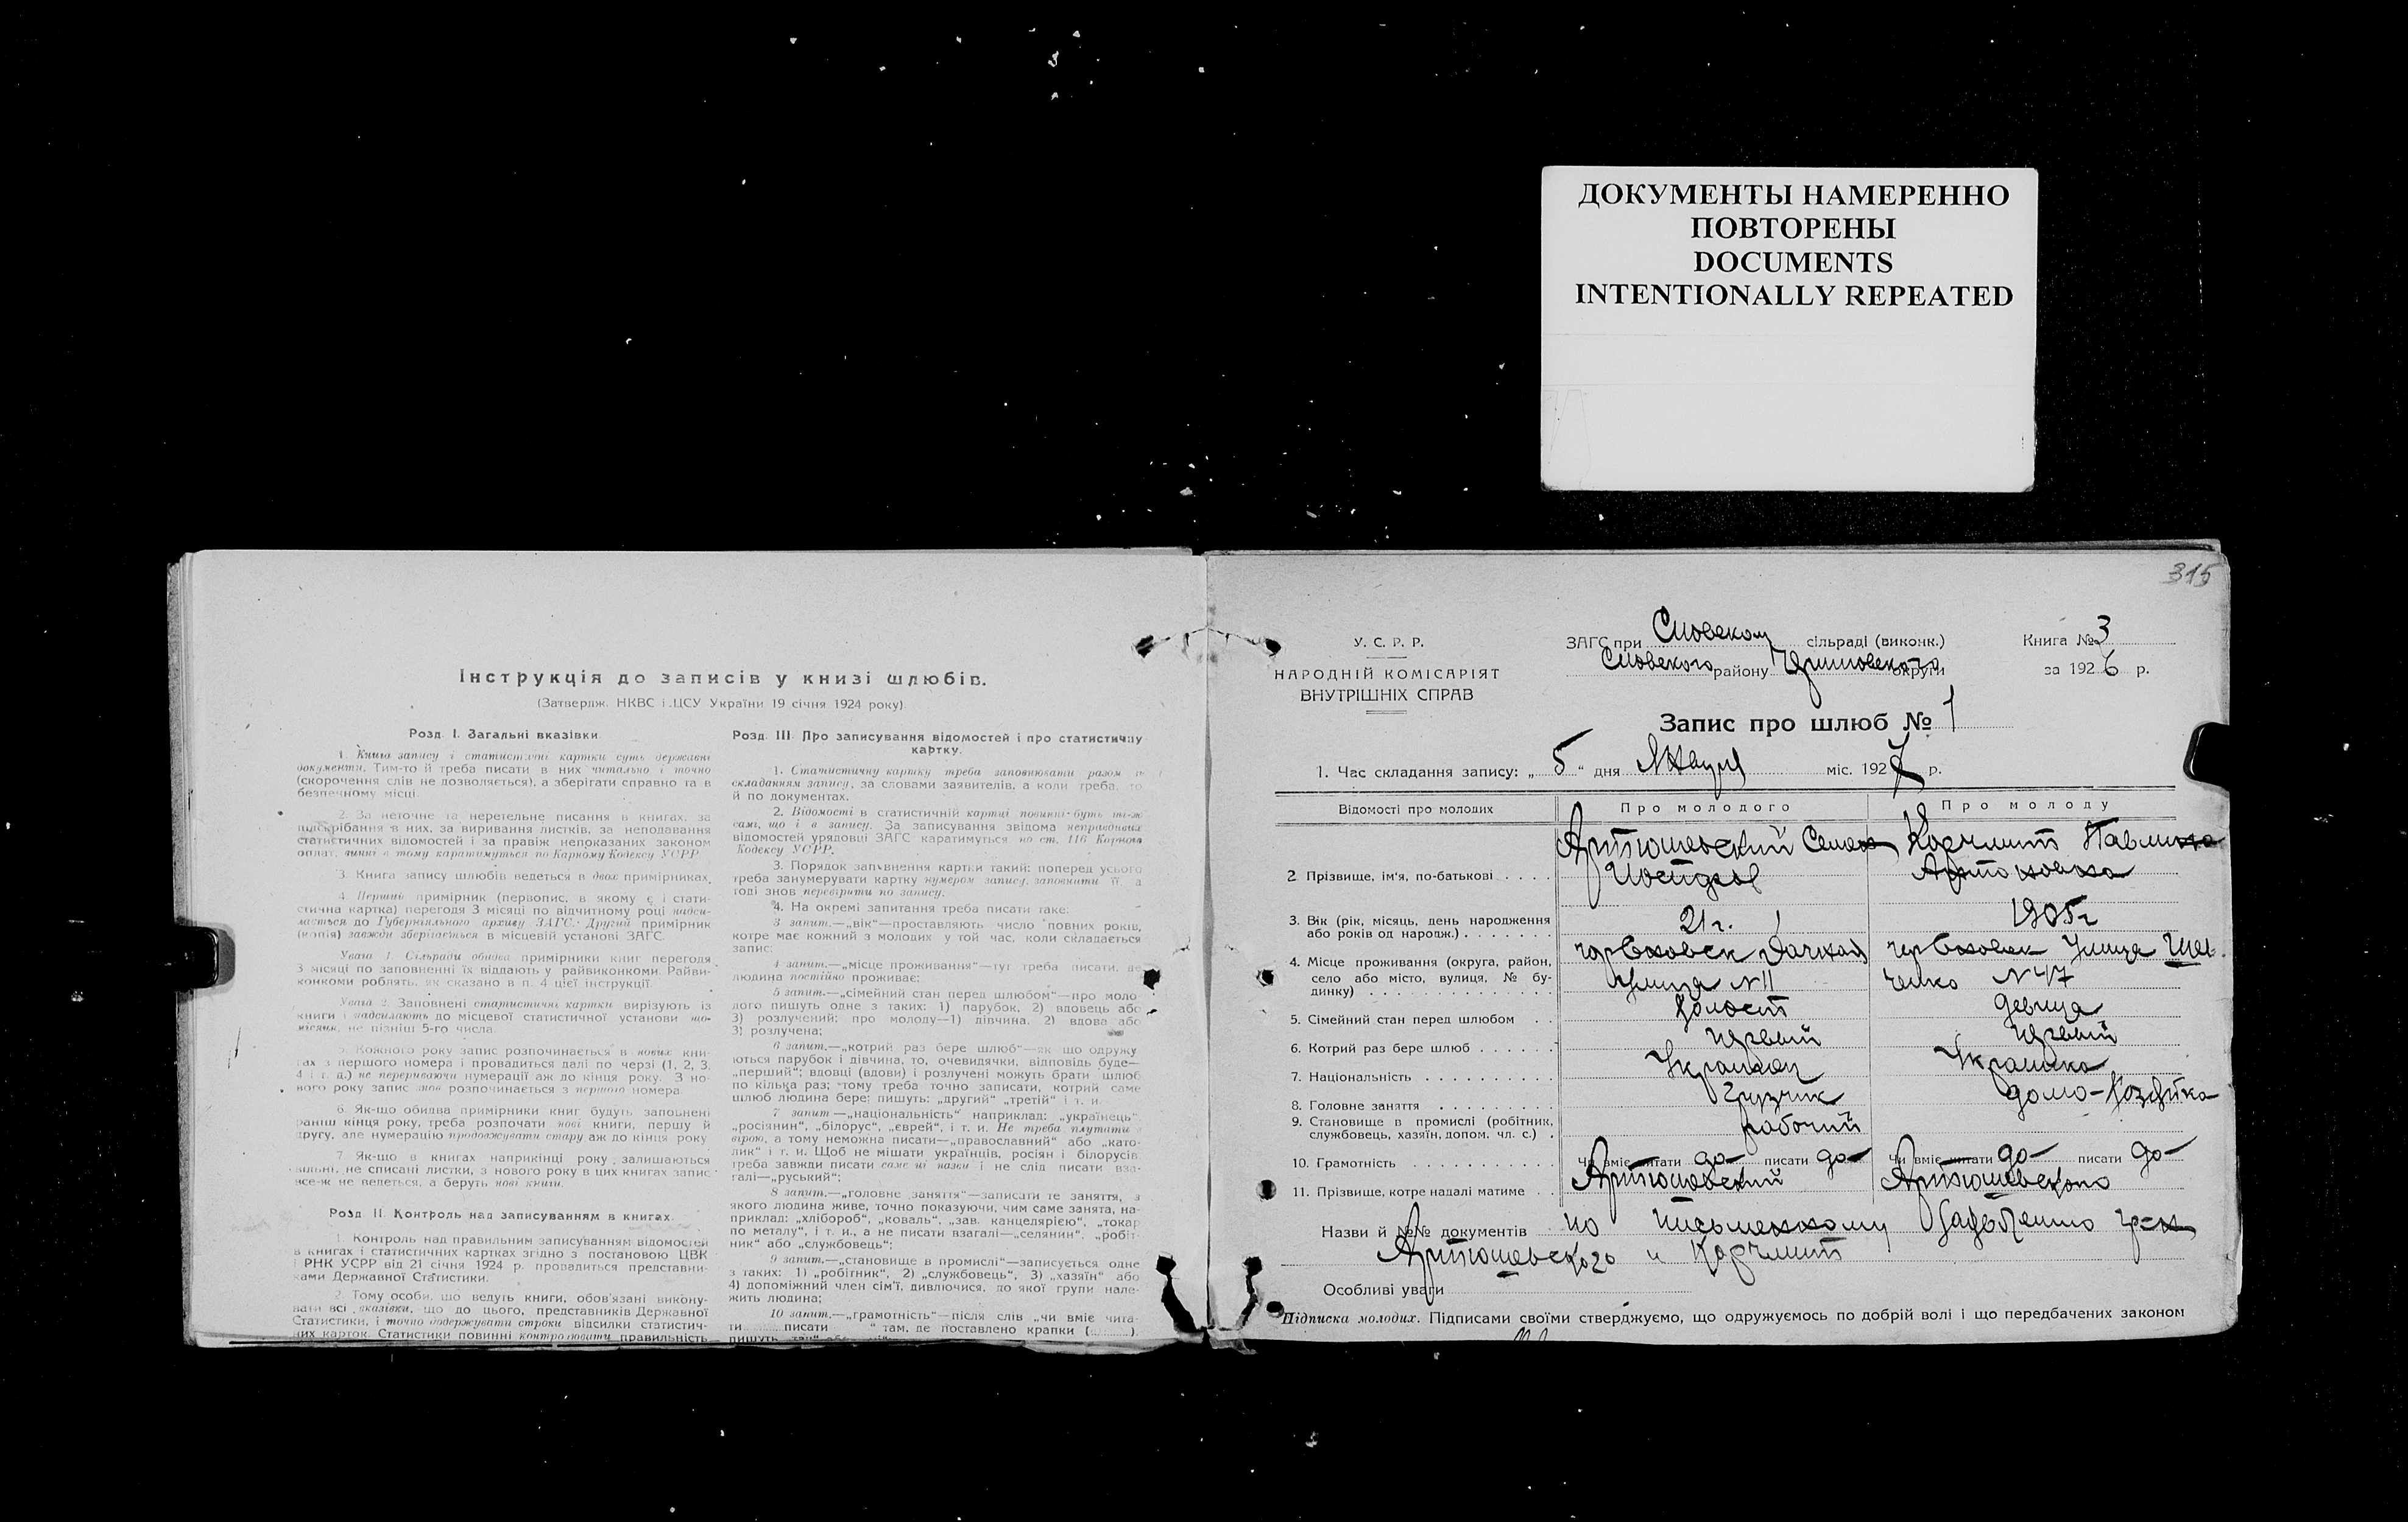 ДОКУМЕНТЫ НАМЕРЕННО
ПОВТОРЕНЫ
DOCUMENTS
INTENTIONALLY REPEATED
Інструкція до записів у книзі шлюбів.
(Затвердж. НКВС і ЦСУ України 19 січня 1924 року).
Розд. І. Загальні вказівки.
1. Книга запису і статистичні картки суть державні
документи. Тим-то й треба писати в них читально і точно
(скорочення слів не дозволяється), а зберігати справно та в
безпечному місці.
2. За неточне та неретельне писання в книгах, за
підскрібання в них, за виривання листків, за неподавання
статистичних відомостей і за правіж непоказаних законом
оплат, винні в тому каратимуться по Карному Кодексу УСРР.
3. Книга запису шлюбів ведеться в двох примірниках.
4. Перший примірник (первопис, в якому є і стати-
стична картка) перегодя 3 місяці по відчитному році надси-
лається до Губерніяльного архиву ЗАГС. Другий примірник
(копія) завжди зберігається в місцевій установі ЗАГС.
Увага 1. Сільради обидва примірники книг перегодя
3 місяці по заповненні їх віддають у райвиконкоми. Райви-
конкоми роблять, як сказано в п. 4 цієї інструкції.
Увага 2. Заповнені статистичні картки вирізують із
книги і надсилають до місцевої статистичної установи що-
місяця, не пізніш 5-го числа.
5. Кожного року запис розпочинається в нових кни-
гах з першого номера і провадиться далі по черзі (1, 2, 3,
4 і т. д.) не перериваючи нумерації аж до кінця року. З но-
вого року запис знов розпочинається з першого номера.
6. Як-що обидва примірники книг будуть заповнені
раніш кінця року, треба розпочати нові книги, першу й
другу, але нумерацію продовжувати стару аж до кінця року
7. Як-що в книгах наприкінці року залишаються
вільні, не списані листки, з нового року в цих книгах запис
все-ж не ведеться, а беруть нові книги.
Розд. ІІ. Контроль над записуванням в книгах.
1. Контроль над правильним записуванням відомостей
в книгах і статистичних картках згідно з постановою ЦВК
і РНК УСРР від 21 січня 1924 р. провадиться представни-
ками Державної Статистики.
2. Тому особи, що ведуть книги, обов'язані викону-
вати всі вказівки, що до цього, представників Державної
Статистики, і точно додержувати строки відсилки статистич-
них карток. Статистики повинні контролювати правильність
Розд. ІІІ. Про записування відомостей і про статистичну
картку.
1. Статистичну картку треба заповнювати разом із
складанням запису, за словами заявителів, а коли треба, то
й по документах.
2. Відомості в статистичній картці повинні буть ті-ж
самі, що і в запису. За записування звідома неправдивих
відомостей урядовці ЗАГС каратимуться по ст. 116 Карного
Кодексу УСРР.
3. Порядок заповнення картки такий: поперед усього
треба занумерувати картку нумером запису, заповнити її, а
тоді знов перевірити по запису.
4. На окремі запитання треба писати таке:
3 запит.—„вік“—проставляють число повних років,
котре має кожний з молодих у той час, коли складається
запис;
4 запит.—„місце проживання“—тут треба писати, де
людина постійно проживає;
5 запит.—„сімейний стан перед шлюбом“—про моло
дого пишуть одне з таких: 1) парубок, 2) вдовець або
3) розлучений; про молоду—1) дівчина, 2) вдова або
3) розлучена;
6 запит.—„котрий раз бере шлюб“—як що одружу
ються парубок і дівчина, то, очевидячки, відповідь буде—
„перший“; вдовці (вдови) і розлучені можуть брати шлюб
по кілька раз; тому треба точно записати, котрий саме
шлюб людина бере; пишуть: „другий“ „третій“ і т. и.
7 запит.—„національність“ наприклад: „українець“
„росіянин“, „білорус“, „єврей“, і т. и. Не треба плутати з
вірою, а тому неможна писати—„православний“ або „като-
лик“ і т. и. Щоб не мішати українців, росіян і білорусів
треба завжди писати саме ці назви і не слід писати вза-
галі—„руський“;
8 запит.—„головне заняття“—записати те заняття, з
якого людина живе, точно показуючи, чим саме занята, на-
приклад: „хлібороб“, „коваль“, „зав. канцелярією“, „токар
по металу“, і т. и., а не писати взагалі—„селянин“, „робіт
ник“ або „службовець“;
9 запит.—„становище в промислі“—записується одне
з таких: 1) „робітник“, 2) „службовець“, 3) „хазяїн“ або
4) допоміжний член сім'ї, дивлючися, до якої групи нале-
жить людина;
10 запит.—„грамотність“—після слів „чи вміє чита-
ти......... писати ......... “ там, де поставлено крапки (.........),
315
У. С. Р. Р.
НАРОДНІЙ КОМІСАРІЯТ
ВНУТРІШНІХ СПРАВ
ЗАГС при Сновском сільраді (виконк.)
Сновского району округи
Книга № 3
за 1926 р.
Запис про шлюб № 1
1. Час складання запису: „ 5 “ дня Января міс. 1927 р.
Відомості про молодих Про молодого Про молоду
2 Прізвище, ім'я, по-батькові . . . . Артюшевский Семен Павлина
Антоновна
3. Вік (рік, місяць, день народження
або років од народж.) . . . . . . . 21 г. 1905 г
4. Місце проживання (округа, район,
село або місто, вулиця, № бу-
динку) . . . . . . . . . . . . . . Улица N 11 Улица Шев-
ченко N 47
5. Сімейний стан перед шлюбом . Холост девица
6. Котрий раз бере шлюб . . . . . . первый первый
7. Національність . . . . . . . . . . Украинец Украинка
8. Головне заняття . . . . . . . . . Грузчик домо-хозяйка
9. Становище в промислі (робітник,
службовець, хазяїн, допом. чл. с.) . рабочий
10. Грамотність . . . . . . . . . . . Чи вміє читати да писати да Чи вміє читати да писати да
11. Прізвище, котре надалі матиме . . Артюшевский Артюшевского
Назви й №№ документів по письменному гр-н
Артюшевского и
Особливі уваги
Підписка молодих. Підписами своїми стверджуємо, що одружуємось по добрій волі і що передбачених законом